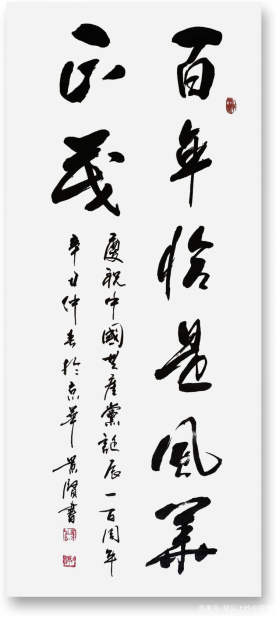 百年恰是風華
正茂
慶祝中國共產黨誕辰一百周年
辛丑仲春於京華 景賢書